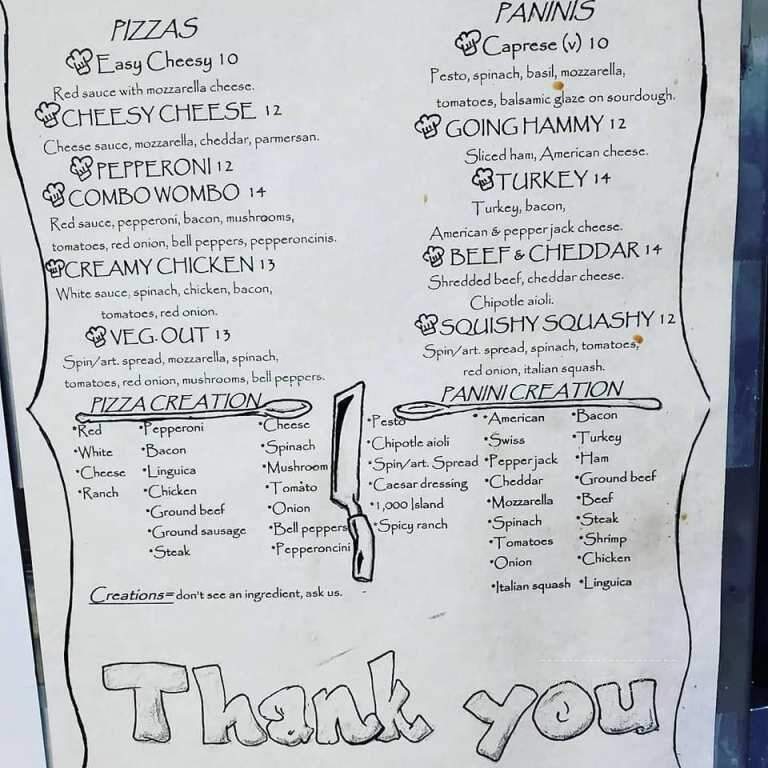 PIZZAS
Easy Cheesy 10
Red sauce with mozzarella cheese.
CHEESY CHEESE 12
Cheese sauce, mozzarella, cheddar, parmersan.
PEPPERONI 12
COMBO WOMBO 14
Red sauce, pepperoni, bacon, mushrooms,
tomatoes, red onion, bell peppers, pepperoncinis.
CREAMY CHICKEN 13
White sauce, spinach, chicken, bacon,
tomatoes, red onion.
VEG. OUT 13
Spin/art. spread, mozzarella, spinach,
tomatoes, red onion, mushrooms, bell peppers.
PIZZA CREATION
•Red
•White
•Cheese
•Ranch
•Pepperoni
•Bacon
•Linguica
•Chicken
•Ground beef
•Ground sausage
•Steak
•Cheese
•Spinach
•Mushroom
•Tomato
•Onion
•Bell peppers
•Pepperoncini
Creations= don't see an ingredient, ask us.
PANINIS
Caprese (v) 10
Pesto, spinach, basil, mozzarella,
tomatoes, balsamic glaze on sourdough.
GOING HAMMY 12
Sliced ham, American cheese.
TURKEY 14
Turkey, bacon,
American & pepper jack cheese.
BEEF & CHEDDAR 14
Shredded beef, cheddar cheese.
Chipotle aioli.
SQUISHY SQUASHY 12
Spin/art. spread, spinach, tomatoes,
red onion, italian squash.
PANINI CREATION
•Pesto
•Chipotle aioli
•Spin/art. Spread
•Caesar dressing
•1,000 Island
•Spicy ranch
•American
•Swiss
•Pepper jack
•Cheddar
•Mozzarella
•Spinach
•Tomatoes
•Onion
•Italian squash
•Bacon
•Turkey
•Ham
•Ground beef
•Beef
•Steak
•Shrimp
•Chicken
•Linguica
Thank you